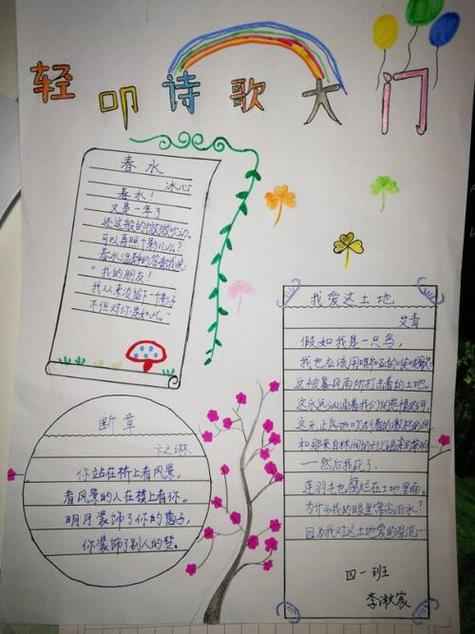 轻叩诗歌大门
春水
冰心
春水！
又是一年了
还这般的微微吹动，
可以再照个影儿么？
春水温静的答谢我说
"我的朋友！
我从来没留下一个影子
不但对你是如此。"
断章
卞之琳
你站在桥上看风景，
看风景的人在楼上看你。
明月装饰了你的窗子，
你装饰了别人的梦。
我爱这土地
艾青
假如我是一只鸟，
我也应该用嘶哑的
这被暴风雨所打击着的土地，
这永远汹涌着我们的悲愤的河
这无止息地吹刮着的激怒的风
和那来自林间的
——然后我死了，
连羽毛也腐烂在土地里面。
为什么我的眼里常含泪水？
因为我对这土地爱的深沉…
四一班
李
家